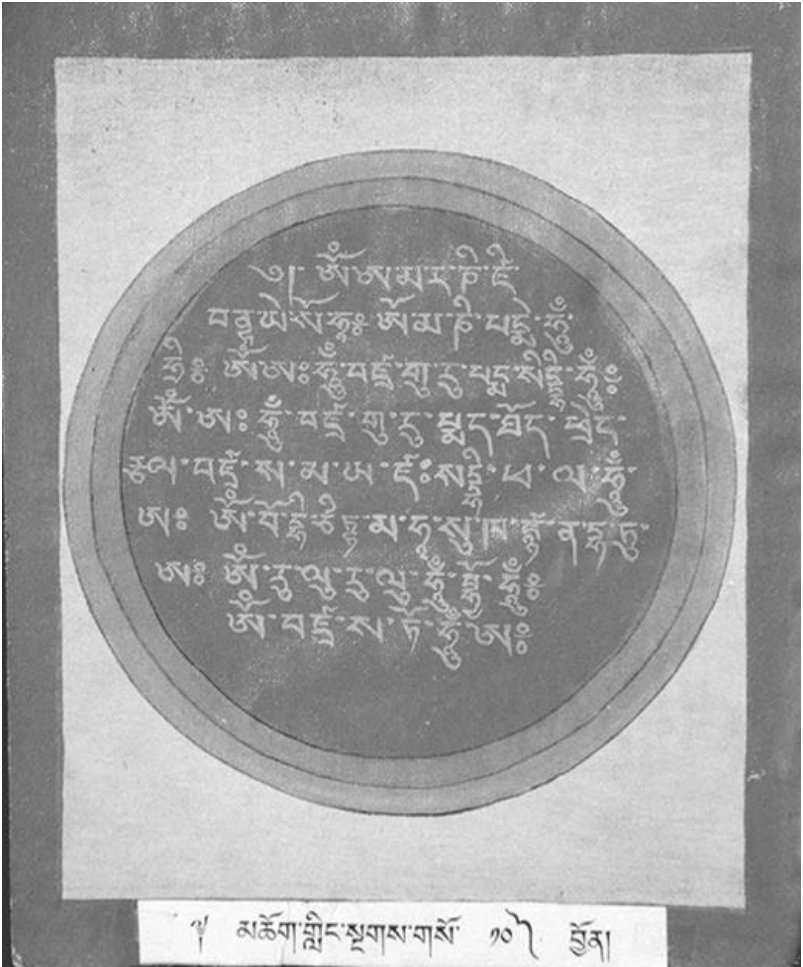 ༄། ཨོཾ་ཨ་མ་ར་ཎི་ཛི་
ཨོ་མ་ཎི་པདྨེ་ཧཱུྃ་
ཧྲཱིཿ ཨོཾ་ཨཿཧཱུྃ་བཛྲ་གུ་རུ་པདྨ་སིདྡྷི་ཧཱུྃཿ
ཨོཾ་ཨཿ ཧཱུྃ་བཛྲ་གུ་རུ་པདྨ་ཐོད་ཕྲེང་
རྩལ་བཛྲ་ས་མ་ཡ་ཛཿསིདྡྷི་ཕ་ལ་ཧཱུྃ་
ཨཿ ཨོཾ་བོ་དྷི་ཙིཏྟ་མ་ཧཱ་སུ་ཁ་
ཨཿ ཨོཾ་རུ་ལུ་རུ་ལུ་ཧཱུྃ་བྷྱོ་ཧཱུྃཿ
ཨོཾ་བཛྲ་ས་ཏོ་ཧཱུྃ་ཨཿ
༈ མཆོག་གླིང་སྔགས་གསོ་ ༡༠ བྱོན།